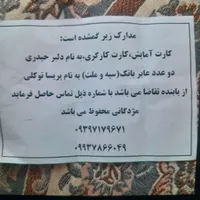 مدارک زیر گمشده است:
کارت آمایش،کارت کارگری،به نام دلبر حیدری
دو عدد عابر بانک(سپه و ملت) به نام پریسا توکلی
از یابنده تقاضا می باشد با شماره ذیل تماس حاصل فرماید
مژدگانی محفوظ می باشد
۰۹۳۹۷۱۷۹۶۷۱
۰۹۹۳۷۸۶۶۰۴۹